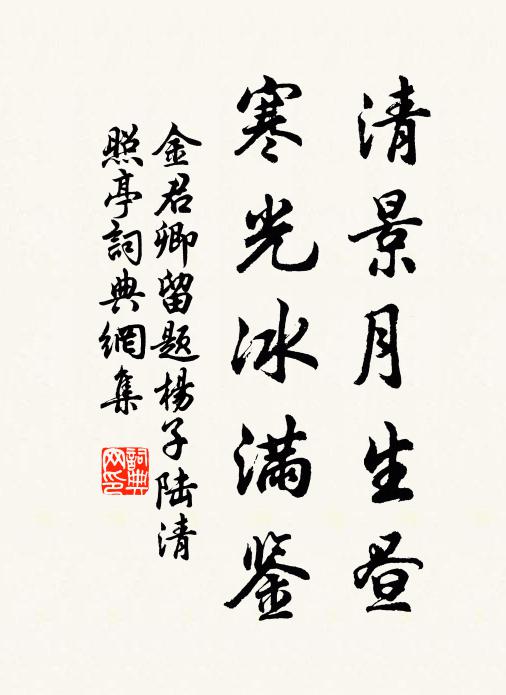 清景月生昼
寒光冰满鉴
金君卿留题楊子陆清
照亭詞典網集
詞典网印